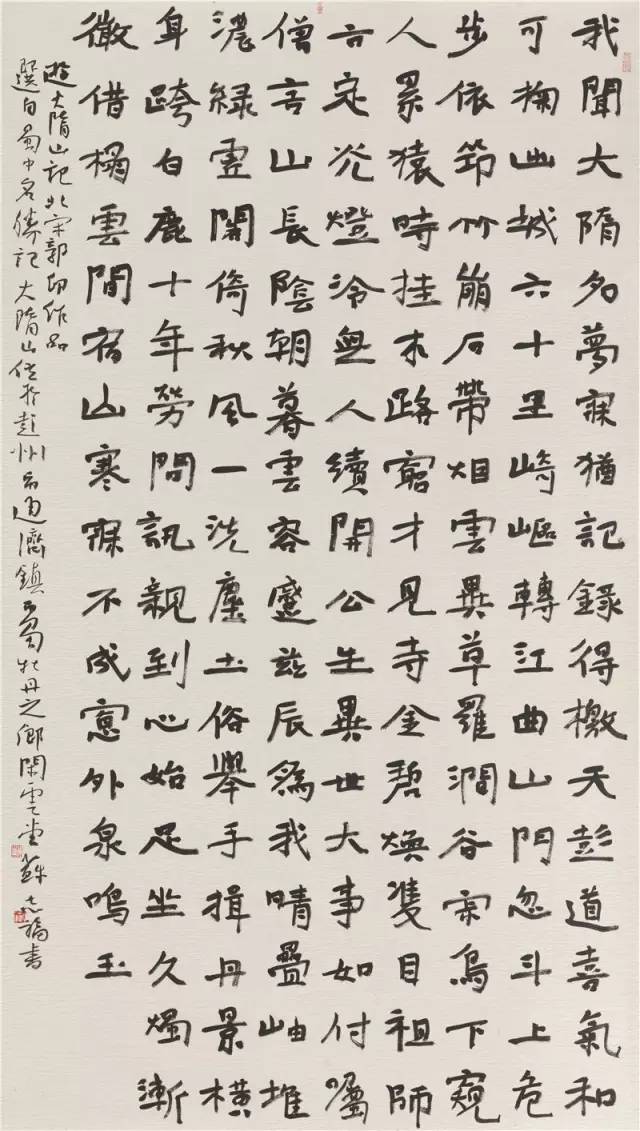 我聞大隋名夢寐猶記錄得檄天彭道喜氣和
可掬出城六十里崎嶇轉江曲山門忽斗上危
步依筇竹崩石帶烟雲異草羅澗谷烏下窺
人累猿時挂木路窮才見寺金碧煥雙目祖師
定光燈冷無人續開公生異世大事如付囑
僧言山長陰朝暮雲容蹙茲辰為我晴疊岫堆
濃綠虛閣倚秋風一洗塵土俗舉手揖丹景橫
身跨白鹿十年勞問訊親到心始足坐久燭漸
微借榻雲間宿山寒寐不成窗外泉鳴玉
遊大隋山記北宋郭印作品
選自蜀中名勝記大隋山位於彭州市通濟鎮蜀牡丹之鄉閑雲堂蘇志書